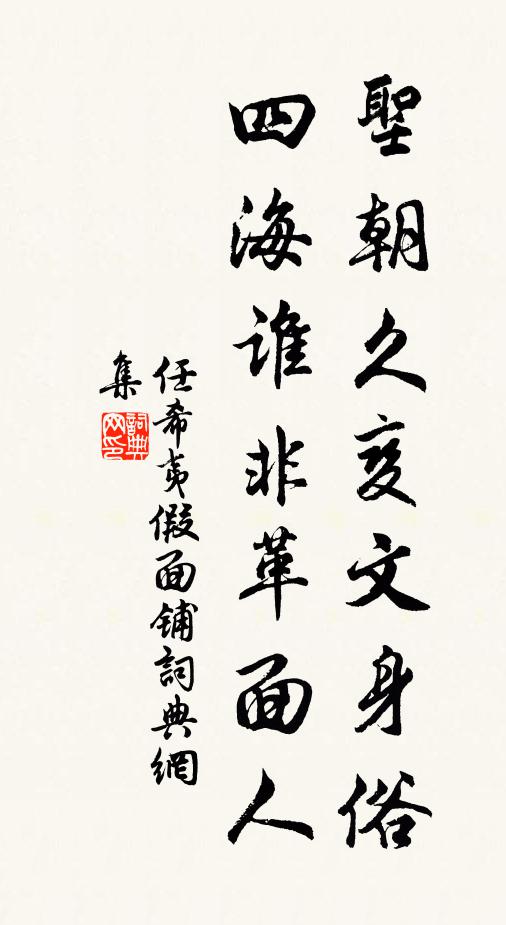 聖朝久变文身俗
四海谁非革面人
任希夷假面铺詞典網
集
詞典
网印